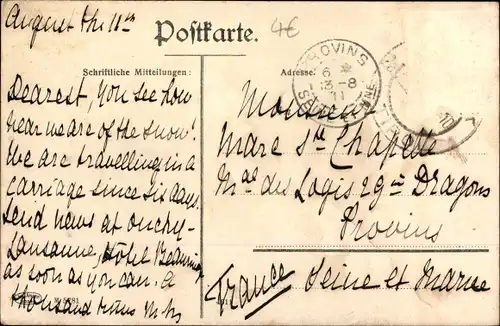 August the 11th
Postkarte.
4€
Schriftliche Mitteilungen:
Adresse:
PROVINS
6
13-8
11
SEINE ET MARNE
Dearest, you see how
near we are of the snow!
We are travelling in a
carriage since six days.
Send news at ouchy-
Lausanne, Hôtel Beaurivage
as soon as you can. a
thousand
Monsieur
Marc Ste Chapelle
Mal des Logis 29e Dragons
Provins
France
Seine et Marne